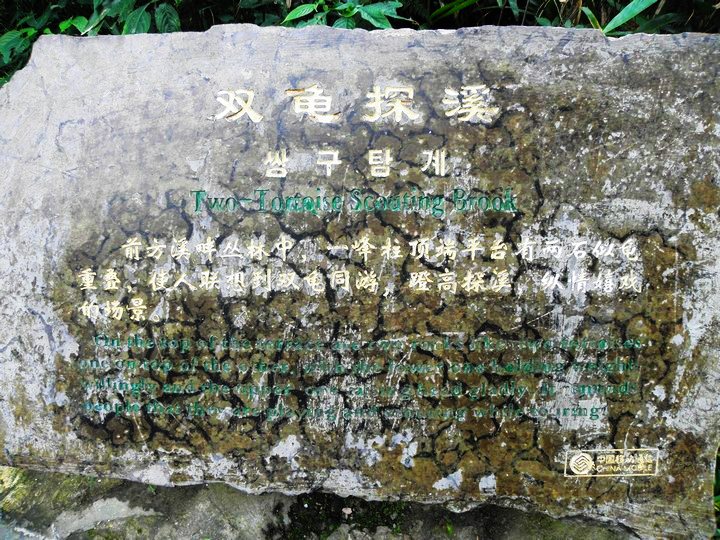 双龟探溪
쌍구탐계
Two-Tortoise Scouting Brook
前方溪畔丛林中，一峰柱顶端平台有两石似龟
重叠，使人联想到双龟同游，登高探溪，纵情嬉戏
的场景。
On the top of the terrace are two rocks like two tortoises
one on top of the other, with the lower one holding weight
willingly and the upper one a long head gladly. It reminds
people that they are playing and scouting while touring.
中国移动通信
CHINA MOBILE